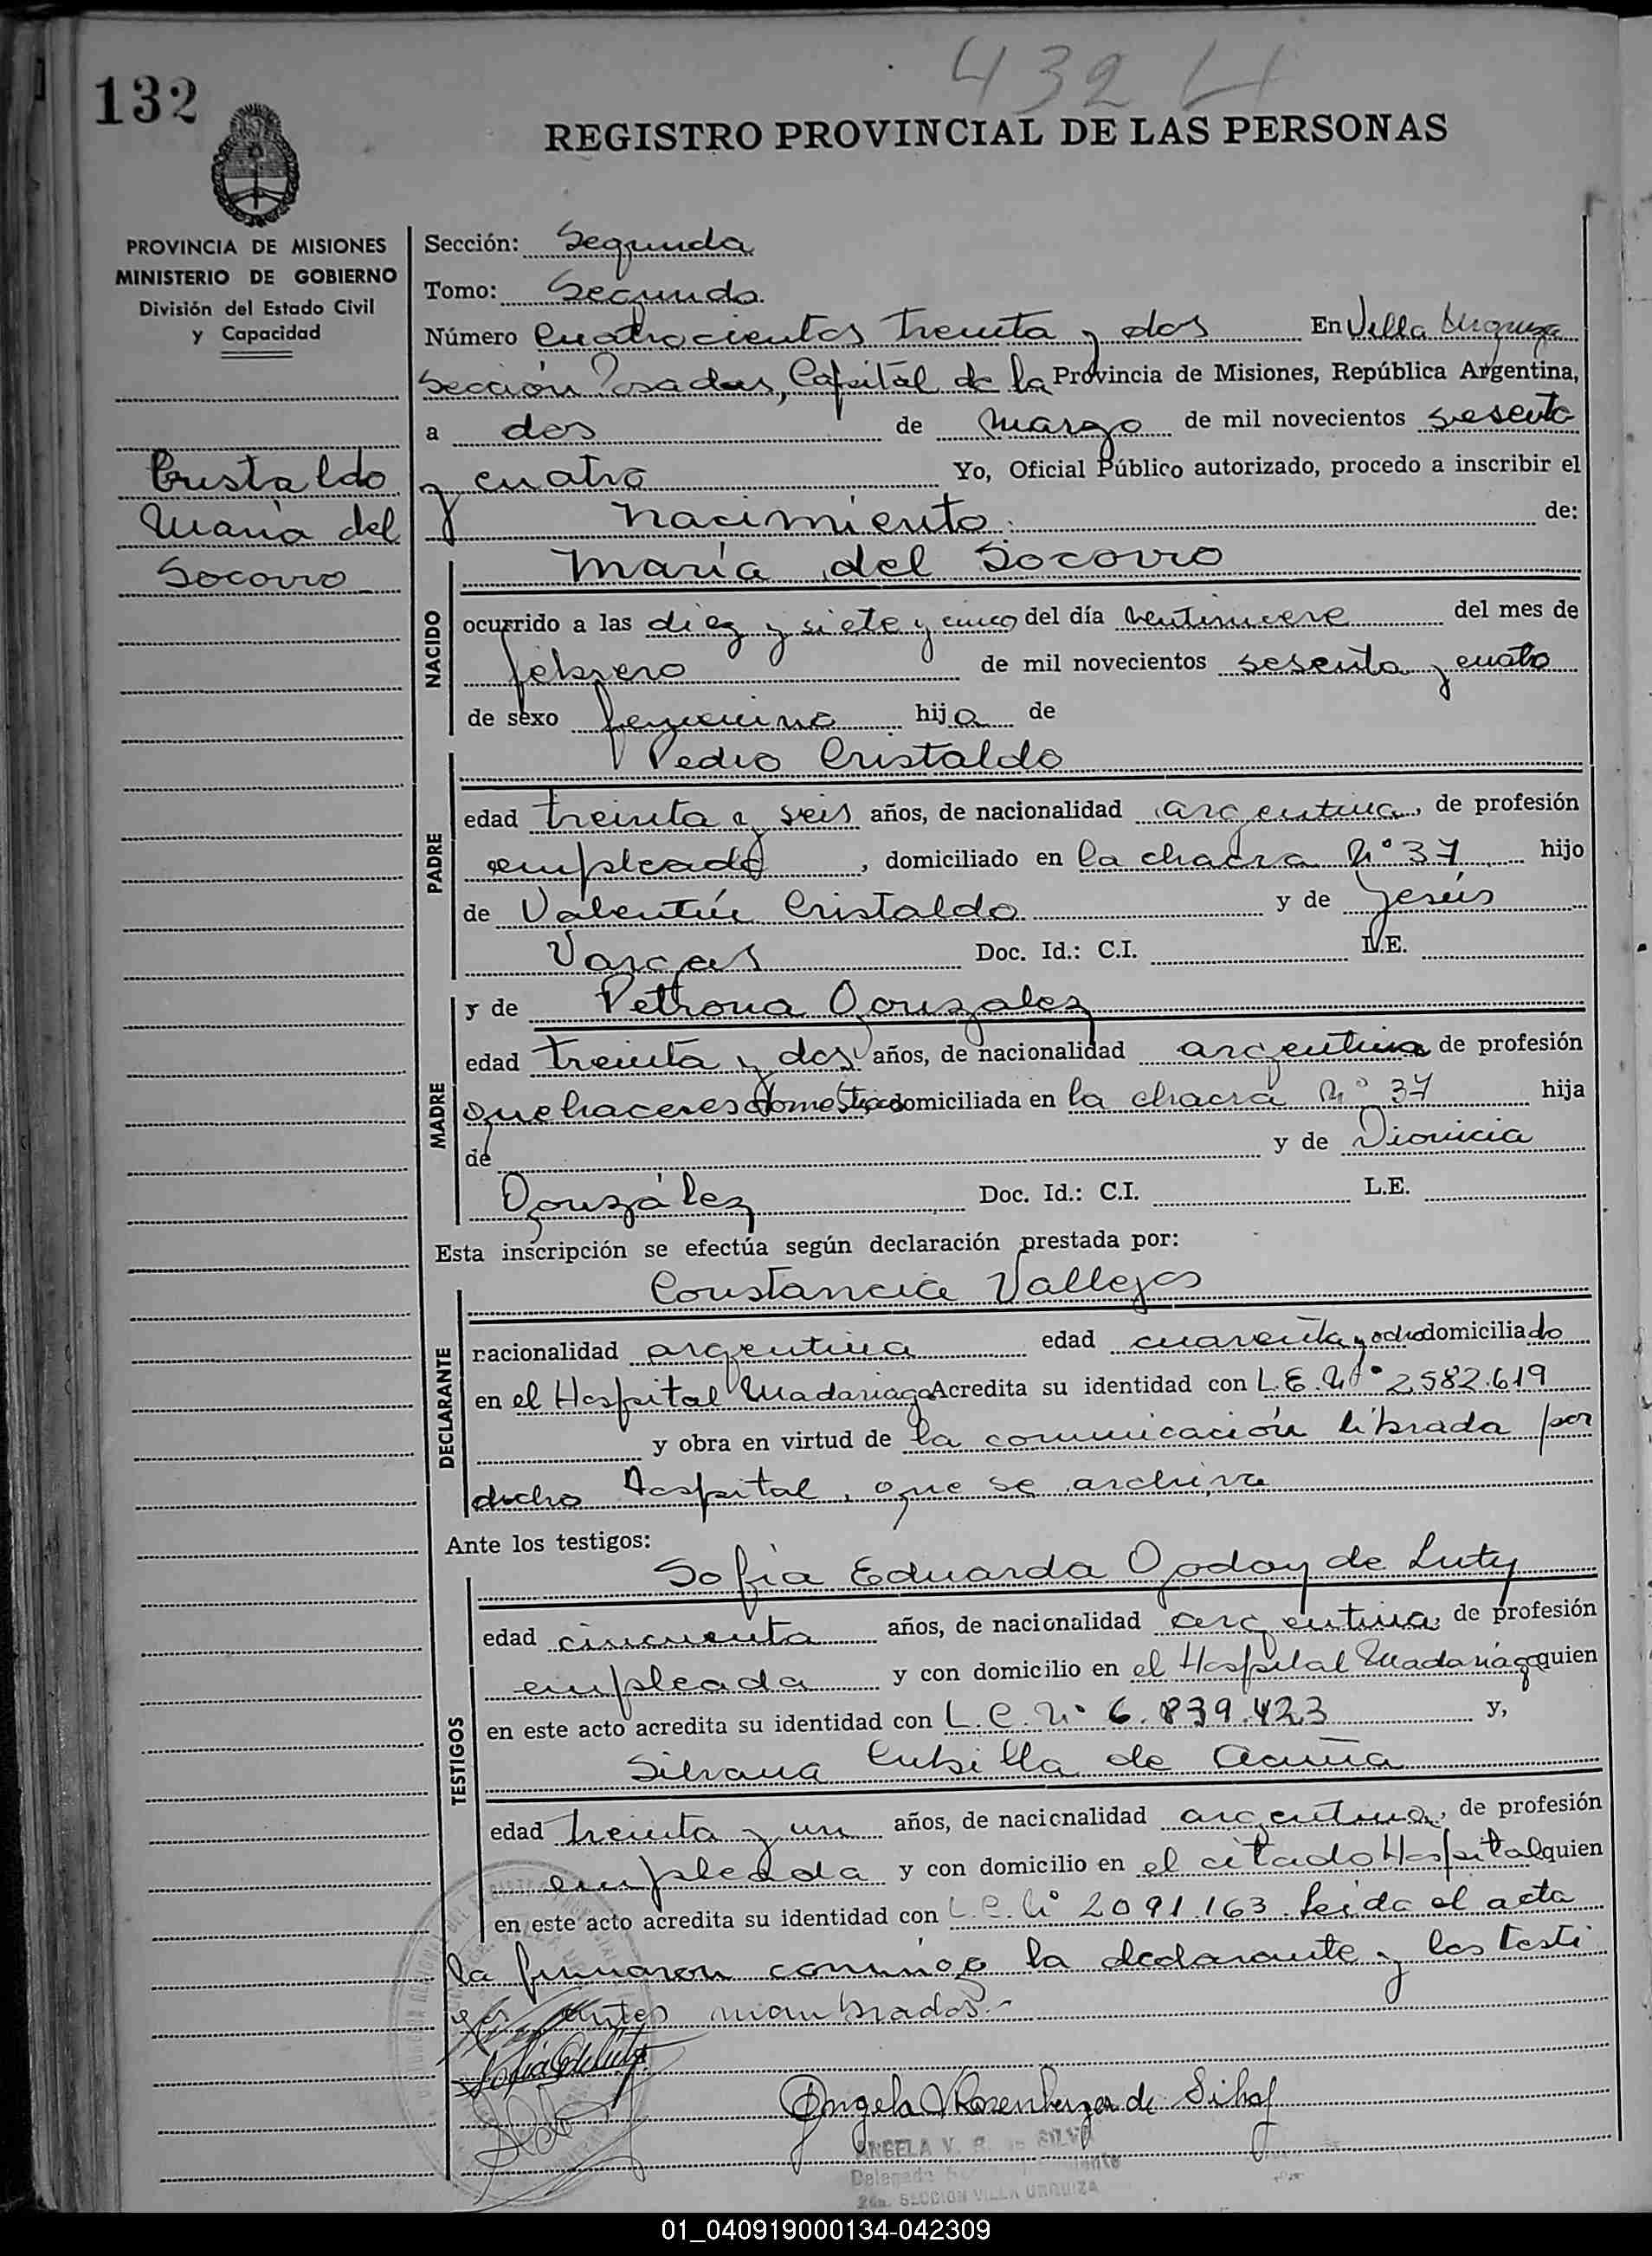 432 H
132
REGISTRO PROVINCIAL DE LAS PERSONAS
PROVINCIA DE MISIONES
MINISTERIO DE GOBIERNO
División del Estado Civil
y Capacidad
Cristaldo
María del
Socorro
Sección: Segunda
Tomo: Segundo
Número Cuatrocientos treinta y dos En Villa Urquiza
Sección Posadas, Capital de la Provincia de Misiones, República Argentina,
a dos de marzo de mil novecientos sesenta
y cuatro Yo, Oficial Público autorizado, procedo a inscribir el
nacimiento de:
NACIDO
María del Socorro
ocurrido a las diez y siete y cinco del día veintinueve del mes de
febrero de mil novecientos sesenta y cuatro
de sexo femenino hija de
PADRE
Pedro Cristaldo
edad treinta y seis años, de nacionalidad argentina, de profesión
empleado, domiciliado en la chacra Nº 37 hijo
de Valentín Cristaldo y de Jesús
Vargas Doc. Id.: C.I. L.E.
MADRE
y de Petrona Gonzalez
edad treinta y dos años, de nacionalidad argentina de profesión
quehaceres domesticos domiciliada en la chacra Nº 37 hija
de y de Dionicia
González Doc. Id.: C.I. L.E.
Esta inscripción se efectúa según declaración prestada por:
DECLARANTE
Constancia Vallejos
nacionalidad argentina edad cuarenta y ocho domiciliado
en el Hospital Madariaga Acredita su identidad con L.E. Nº 2.582.619
y obra en virtud de la comunicación librada por
dicho Hospital, que se archiva
Ante los testigos:
TESTIGOS
Sofia Eduarda Godoy de Luty
edad cincuenta años, de nacionalidad argentina, de profesión
empleada y con domicilio en el Hospital Madariaga quien
en este acto acredita su identidad con L.C. Nº 6.839.423 y,
Silvana Cubilla de Acuña
edad treinta y un años, de nacionalidad argentina, de profesión
empleada y con domicilio en el citado Hospital quien
en este acto acredita su identidad con L.C. Nº 2091.163. Leida el acta
la firmaron conmigo la declarante y los testi
gos antes nombrados.-
Angela V Rosenberger de Silva
ANGELA V. R. de SILVA
2da. SECCION VILLA URQUIZA
01_040919000134-042309